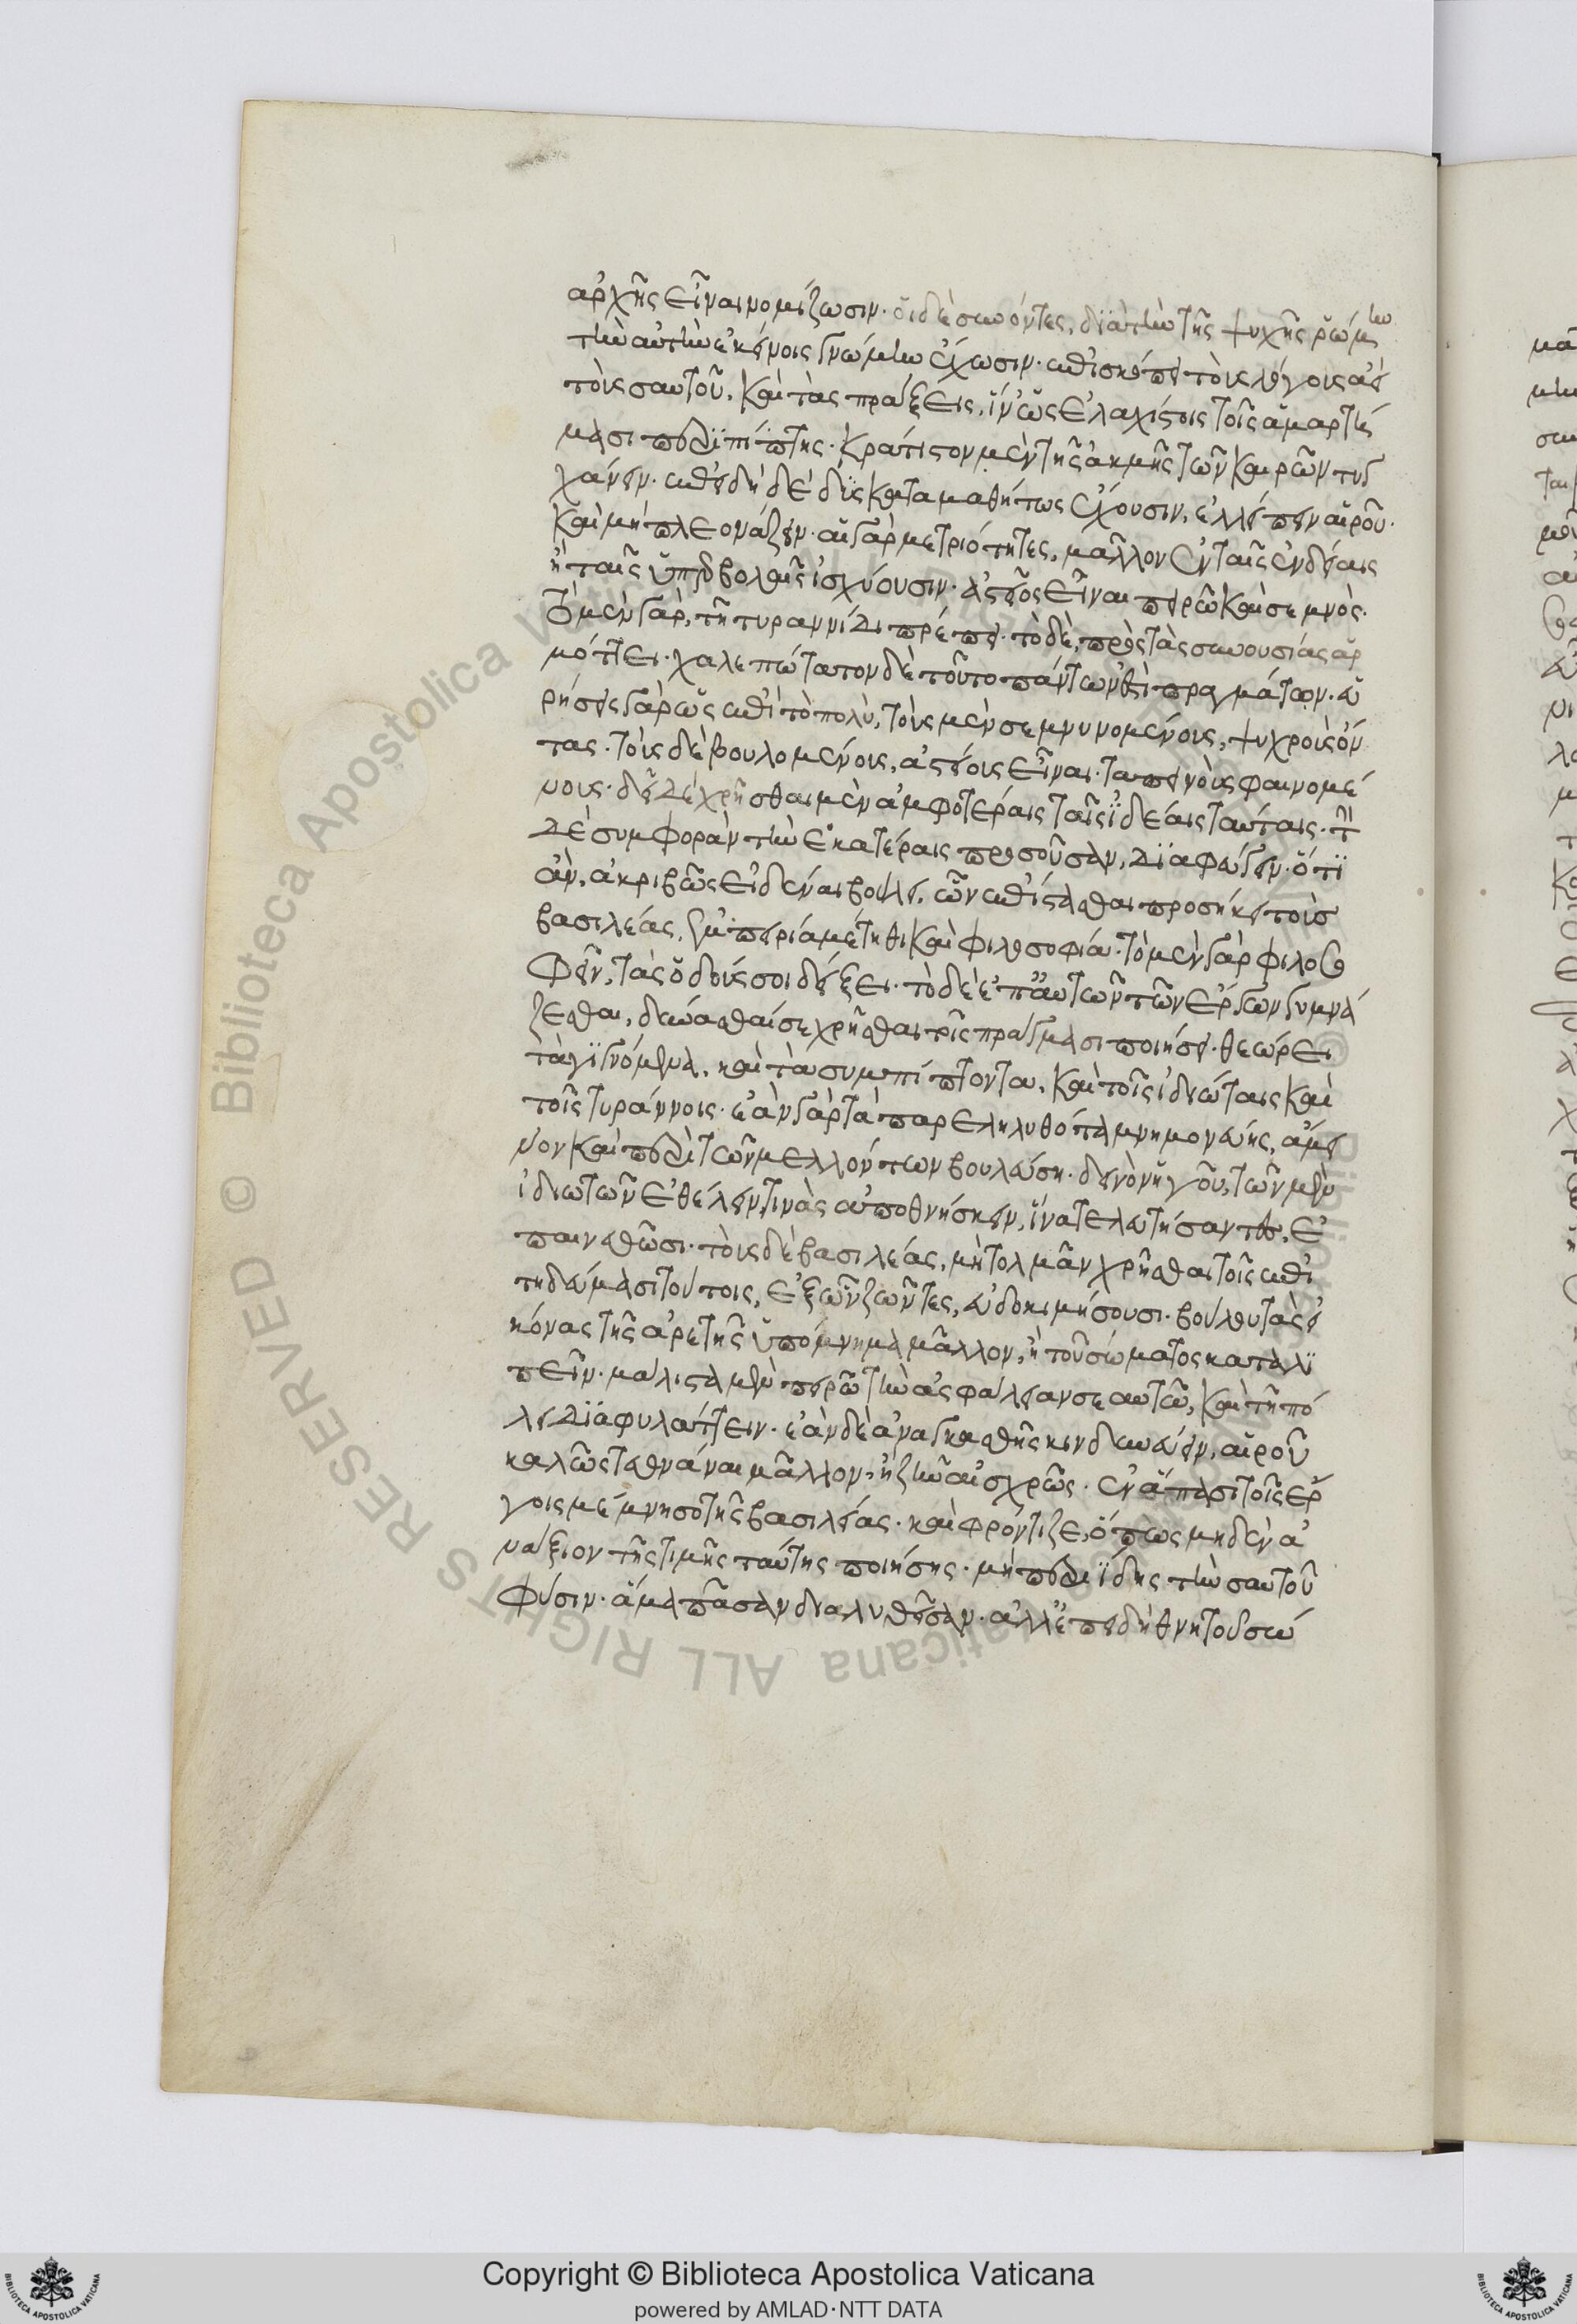 ἀρχῆς εἶναι νομίζωσιν· οἱ δὲ συνόντες, διὰ τὴν τῆς ψυχῆς ῥώμην
τὴν αὐτὴν ἐκείνοις γνώμην ἔχωσιν· ἐπισκόπει τοὺς λόγους ἀεὶ
τοὺς σαυτοῦ, καὶ τὰς πράξεις, ἵν' ὡς ἐλαχίστοις τοῖς ἁμαρτή
μασι περιπίπτης· κράτιστον μὲν τῆς ἀκμῆς τῶν καιρῶν τυγ
χάνειν· ἐπειδὴ δὲ δυσκαταμαθήτως ἔχουσιν, ἐλλείπειν αἱροῦ·
καὶ μὴ πλεονάζειν· αἱ γὰρ μετριότητες, μᾶλλον ἐν ταῖς ἐνδείαις
ἢ ταῖς ὑπερβολαῖς ἰσχύουσιν· ἀστεῖος εἶναι πειρῶ καὶ σεμνὸς·
τὸ μὲν γὰρ, τῆ τυραννίδι πρέπει· τὸ δὲ, πρὸς τὰς συνουσίας ἁρ
μόττει· χαλεπώτατον δὲ τοῦτο πάντων ἐστὶ πραγμάτων· εὑ
ρήσεις γὰρ ὡς ἐπὶ τὸ πολὺ, τοὺς μὲν σεμνυνομένους, ψυχροὺς ὄν
τας· τοὺς δὲ βουλομένους, ἀστείους εἶναι· ταπεινοὺς φαινομέ
νους· δεῖ δὲ χρῆσθαι μὲν ἀμφοτέραις ταῖς ἰδέαις ταύταις· τὴν
δὲ συμφορὰν τὴν ἑκατέραις προσοῦσαν, διαφεύγειν· ὅ τι
ἂν, ἀκριβῶς εἰδέναι βουληθῇς, ὧν ἐπίστασθαι προσήκει τοὺς
βασιλέας, ἐμπειρία μέτηθι καὶ φιλοσοφία· τὸ μὲν γὰρ φιλοσο
φεῖν, τὰς ὁδούς σοι δείξει· τὸ δὲ ἐπ' αὐτῶν τῶν ἔργων γυμνά
ζεσθαι, δύνασθαί σε χρῆσθαι τοῖς πράγμασι ποιήσει· θεώρει
τὰ γιγνόμενα, καὶ τὰ συμπίπτοντα, καὶ τοῖς ἰδιώταις καὶ
τοῖς τυράννοις· ἐὰν γὰρ τὰ παρεληλυθότα μνημονεύης, ἄμει
νον καὶ περὶ τῶν μελλόντων βουλεύση· δεινὸν ἡγοῦ, τῶν μὲν
ἰδιωτῶν ἐθέλειν τινὰς ἀποθνήσκειν, ἵνα τελευτήσαντες, ἐ
παινεθῶσι· τοὺς δὲ βασιλέας, μὴ τολμᾶν χρῆσθαι τοῖς ἐπι
τηδεύμασι τούτοις, ἐξ ὧν ζῶντες, εὐδοκιμήσουσι· βούλου τὰς εἰ
κόνας τῆς ἀρετῆς ὑπόμνημα μᾶλλον, ἢ τοῦ σώματος καταλι
πεῖν· μάλιστα μὲν πειρῶ τὴν ἀσφάλειαν σεαυτῶ, καὶ τῆ πό
λει διαφυλάττειν· ἐὰν δὲ ἀναγκασθῆς κινδυνεύειν, αἱροῦ
καλῶς τεθνάναι μᾶλλον, ἢ ζῆν αἰσχρῶς· ἐν ἅπασι τοῖς ἔρ
γοις μέμνησο τῆς βασιλείας· καὶ φρόντιζε, ὅπως μηδὲν ἀ
νάξιον τῆς τιμῆς ταύτης ποιήσης· μὴ περιίδης τὴν σαυτοῦ
φύσιν· ἅμα πᾶσαν διαλυθεῖσαν· ἀλλ' ἐπειδὴ θνητοῦ σώ
Copyright © Biblioteca Apostolica Vaticana
powered by AMLAD·NTT DATA